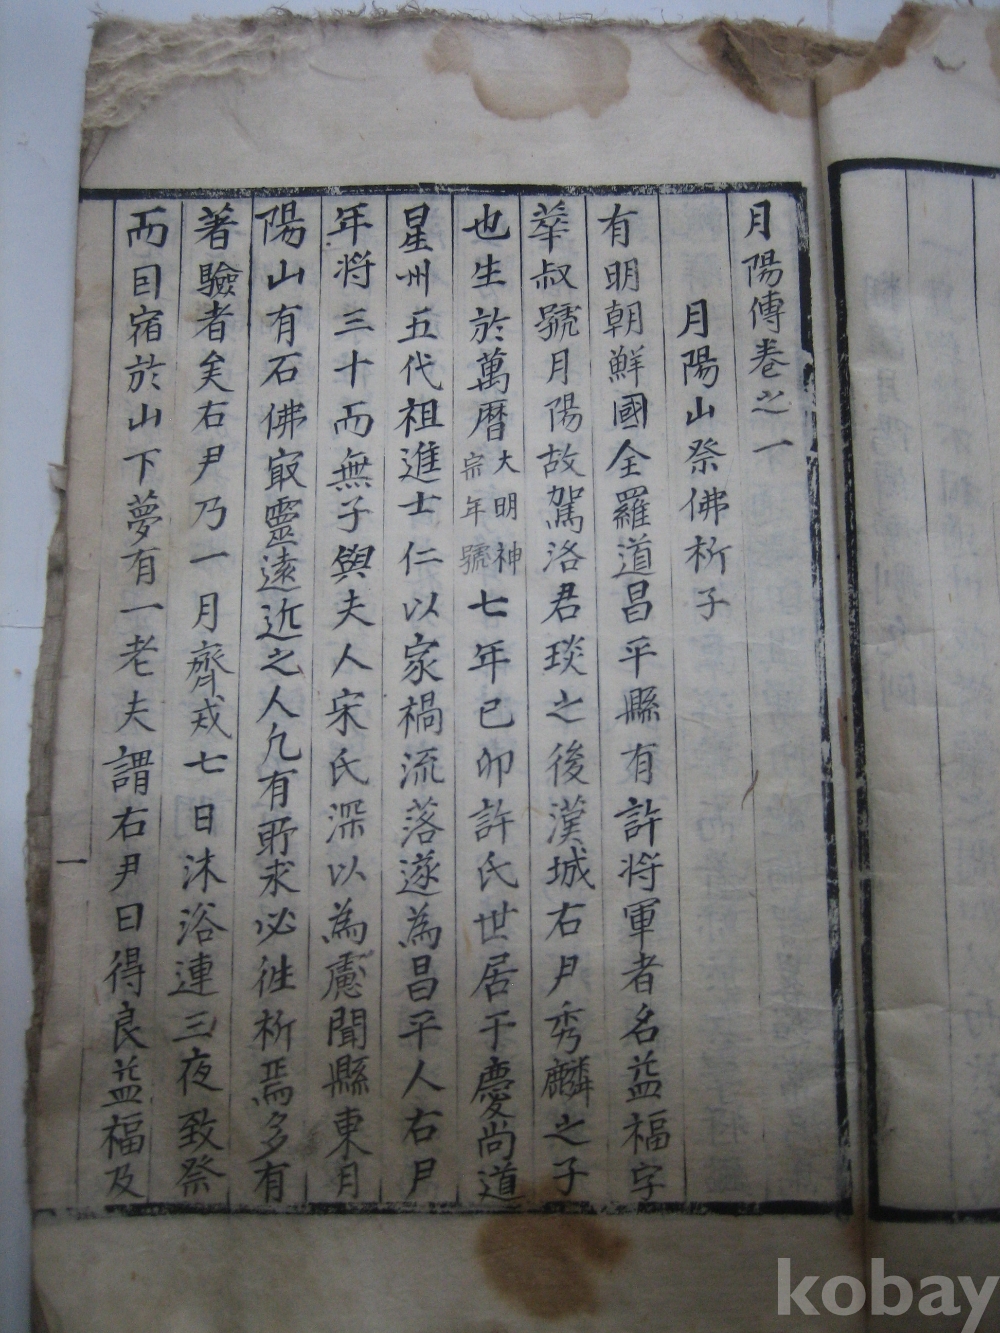 月陽傳卷之一
月陽山祭佛祈子
有明朝鮮國全羅道昌平縣有許將軍者名益福字
華叔號月陽故駕洛君琰之後漢城右尹秀麟之子
也生於萬曆大明神宗年號七年己卯許氏世居于慶尚道
星州五代祖進士仁以家禍流落遂為昌平人右尹
年將三十而無子與夫人宋氏深以為慮聞縣東月
陽山有石佛㝡靈遠近之人凢有所求必徃祈焉多有
著驗者矣右尹乃一月齋戒七日沐浴連三夜致祭
而因宿於山下夢有一老夫謂右尹曰得良益福及
一
kobay